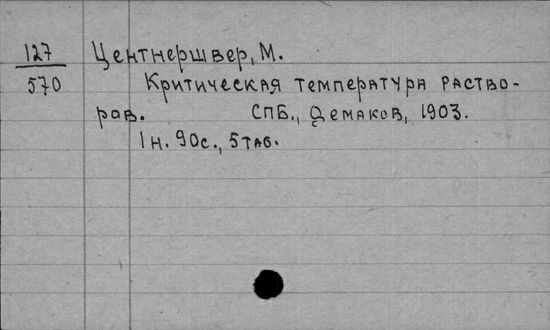 127 Центнершвер, М.
570 Критическая температура раство-
ров. СПБ., Демаков, 1903.
1 н. 90с., 5 таб.